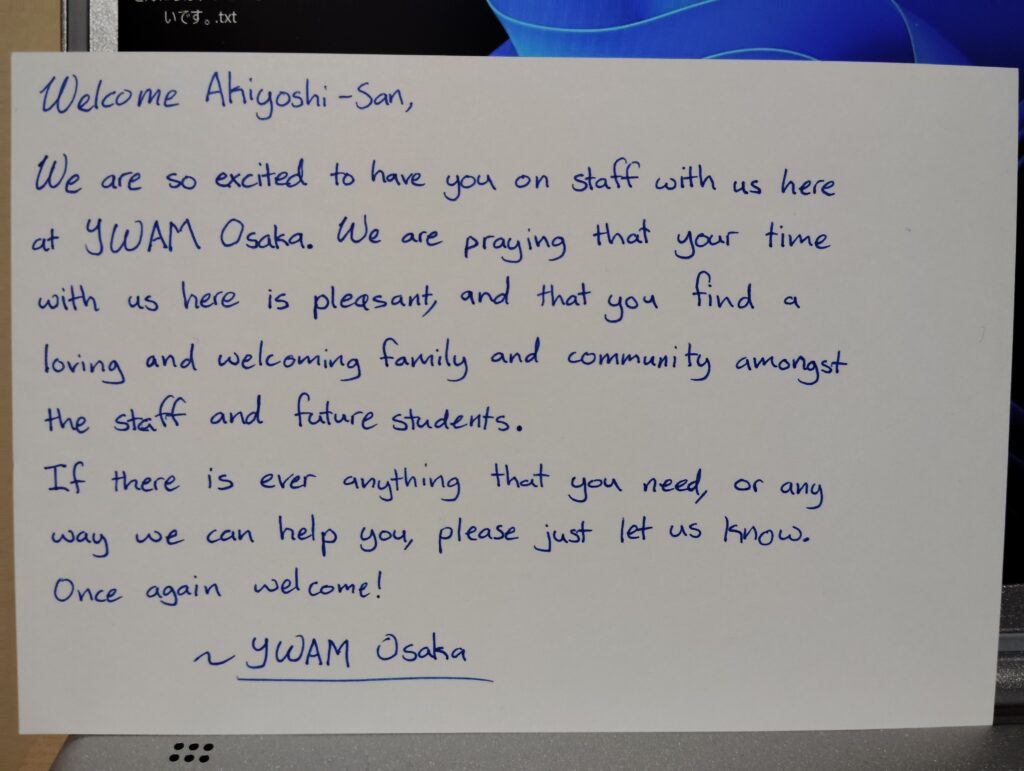 いです。.txt
Welcome Akiyoshi-San,
We are so excited to have you on staff with us here
at YWAM Osaka. We are praying that your time
with us here is pleasant, and that you find a
loving and welcoming family and community amongst
the staff and future students.
If there is ever anything that you need, or any
way we can help you, please just let us know.
Once again welcome!
~ YWAM Osaka